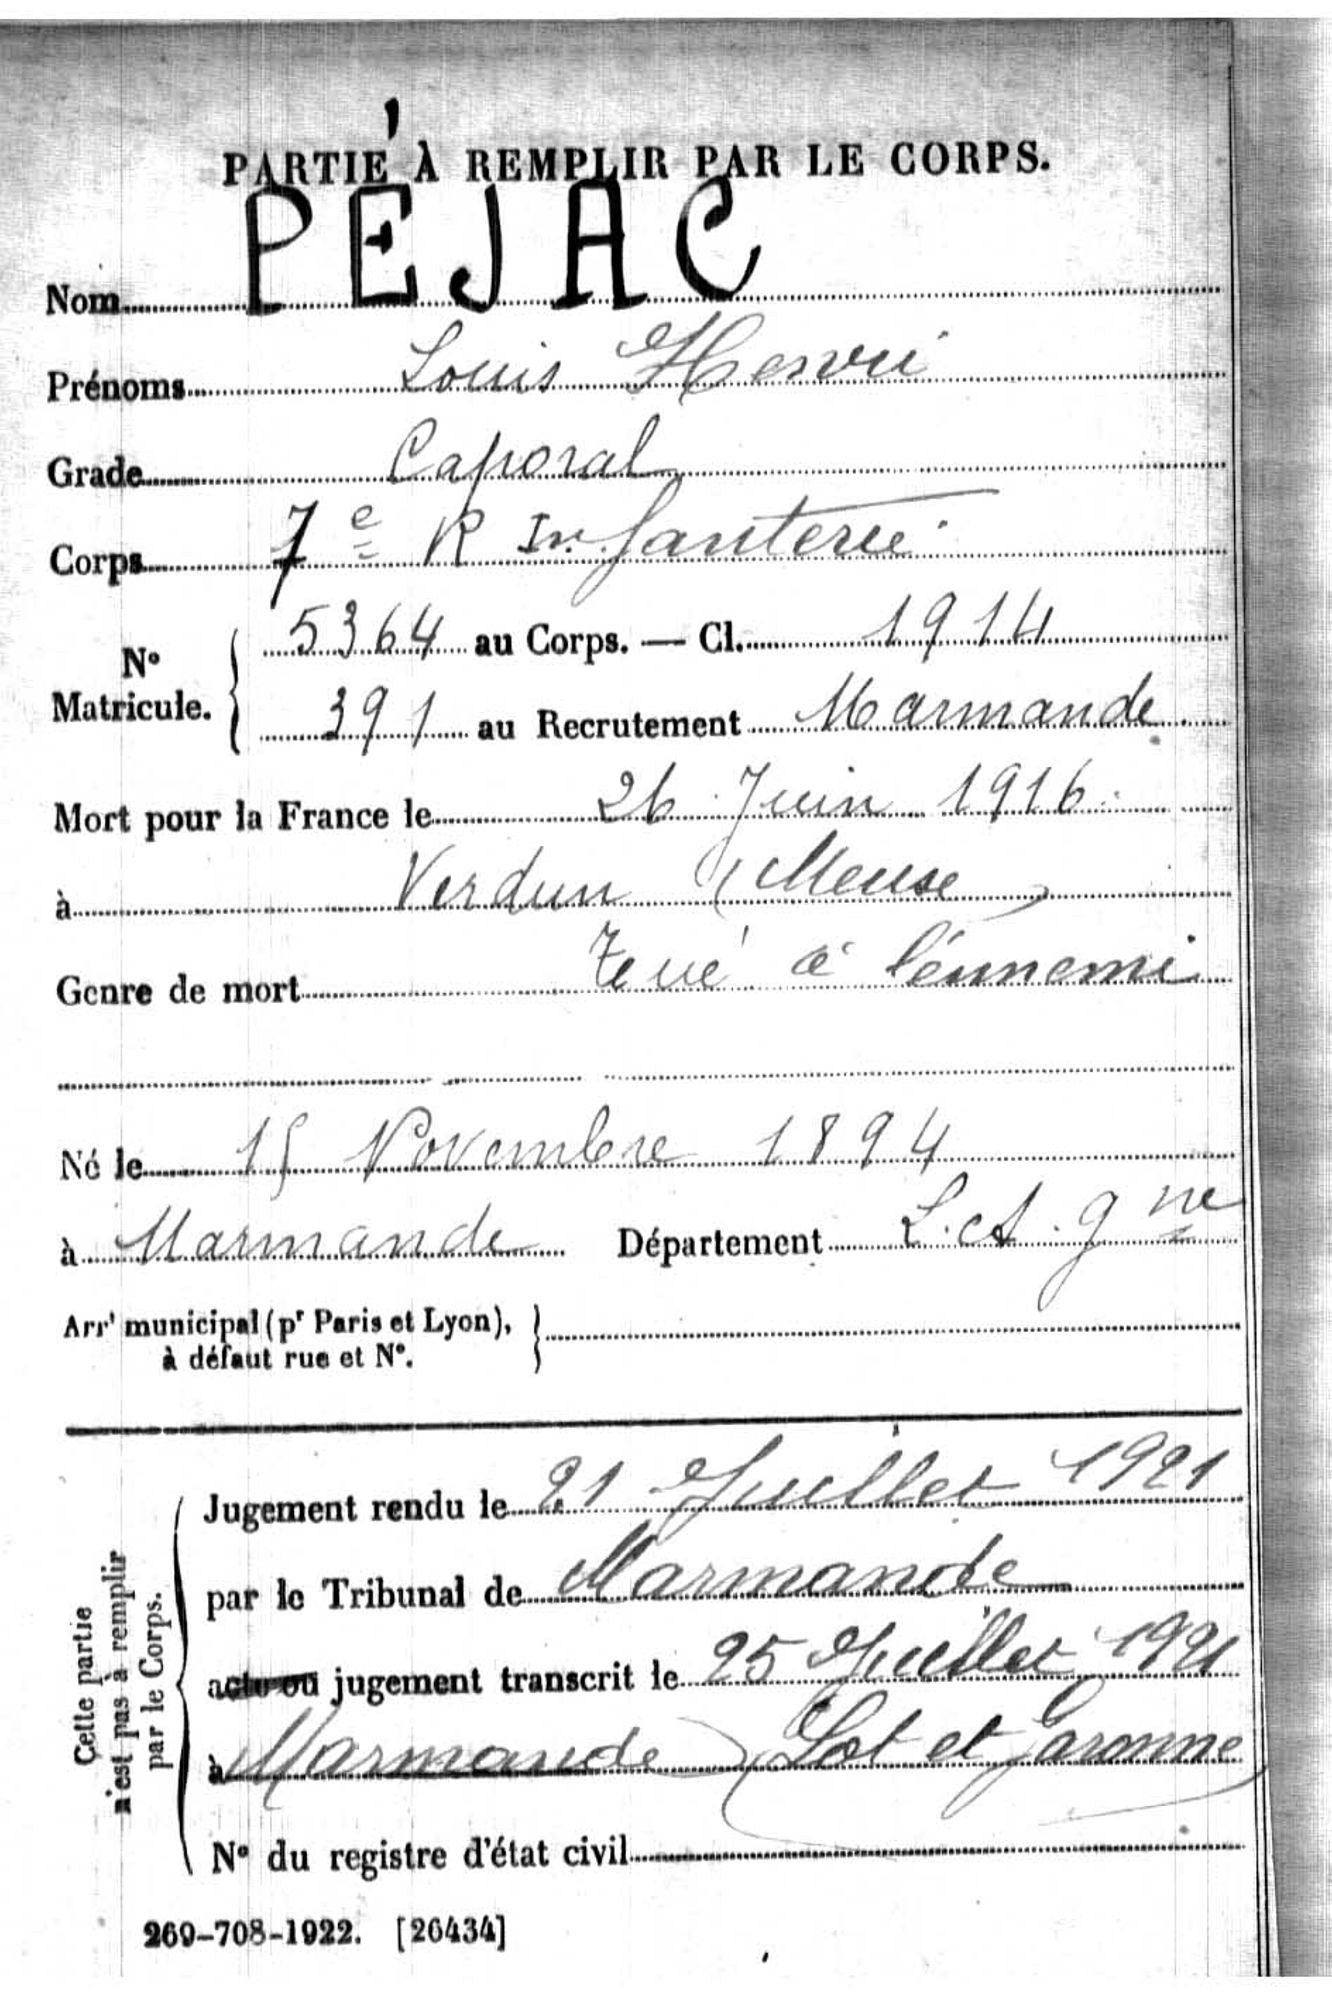 PARTIE À REMPLIR PAR LE CORPS.
Nom PÉJAC
Prénoms Louis Henri
Grade Caporal
Corps 7e R Infanterie
N° Matricule. { 5364 au Corps. — Cl. 1914
391 au Recrutement Marmande
Mort pour la France le 26 Juin 1916
à Verdun (Meuse)
Genre de mort Tué à l'énnemi
Né le 15 Novembre 1894
à Marmande Département L. et G ne
Arrt municipal (pr Paris et Lyon), }
à défaut rue et N°.
Cette partie
n'est pas à remplir
par le Corps.
Jugement rendu le 21 Juillet 1921
par le Tribunal de Marmande
acte ou jugement transcrit le 25 Juillet 1921
à Marmande (Lot et Garonne)
N° du registre d'état civil
269-708-1922. [26434]